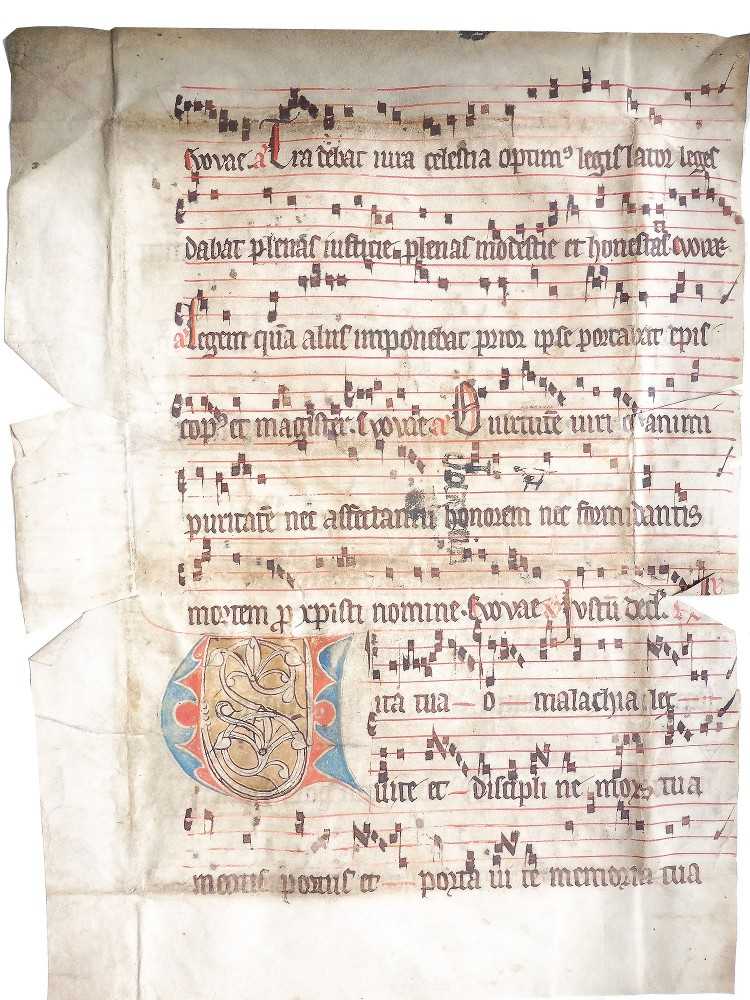 Evovae a Tradebat iura celestia optim⁹ legislator leges
dabat plenas iusticie plenas modestie et honestatis evovae
a Legem quā alus imponebat prior ipse portabat epis
cop⁹ et magister. Evovae a O uirtute uiri animi
puritatē nec affectantis honorem nec formidantis
mortem p xpisti nomine. Evovae Justū decl.
Vita tua o malachia lex
uite et discipli ne mors tua
mortis portus et porta in te memoria tua